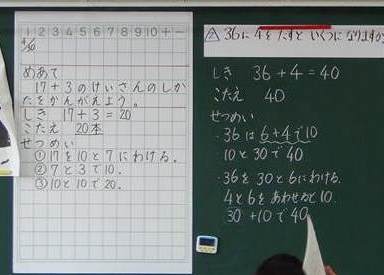 1 2 3 4 5 6 7 8 9 10 + -
4/30
めあて
17+3のけいさんのしか
たをかんがえよう。
しき 17+3=20
こたえ 20本
せつめい
①17を10と7にわける。
②7と3で10.
③10と10で20.
36に4をたすと いくつに なりますか
しき 36+4=40
こたえ 40
せつめい
・36は6+4で10
10と30で40
・36を30と6にわける。
4と6をあわせると10.
30+10で40